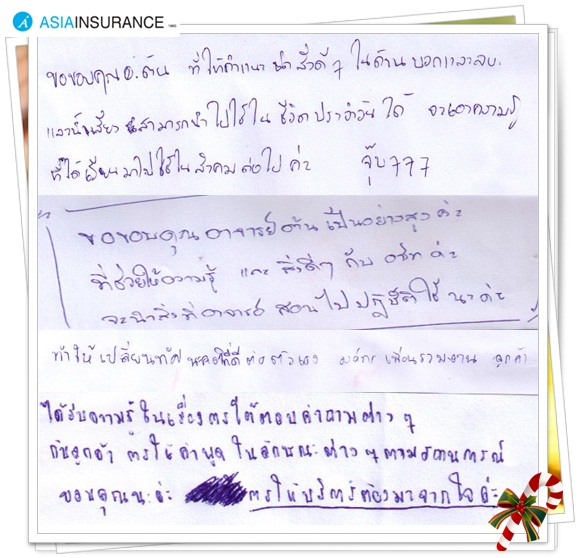 ASIAINSURANCE
ขอขอบคุณ อ.ต้น ที่ให้คำแนะนำสิ่งดีๆ ในด้านบอก
สามารถนำไปใช้ใน ชีวิตประจำวันได้ จะเอาความรู้
ที่ได้เรียนมาไปใช้ในสังคมต่อไป ค่ะ จุ๊บ777
ขอขอบคุณ อาจารย์ต้นเป็นอย่างสูง ค่ะ
ที่ช่วยให้ความรู้ และ สิ่งดีๆ กับ ค่ะ
จะนำสิ่งที่อาจารย์ สอนไป ปฏิบัติใช้ นะค่ะ
ทำให้เปลี่ยนทัศนคติที่ดีต่อตัวเอง องค์กร เพื่อนร่วมงาน ลูกค้า
ได้รับความรู้ในเรื่องการโต้ตอบคำถามต่าง ๆ
กับลูกค้า การใช้คำพูด ในลักษณะต่าง ๆ ตามสถานการณ์
ขอบคุณนะค่ะ การให้บริการต้องมาจากใจค่ะ